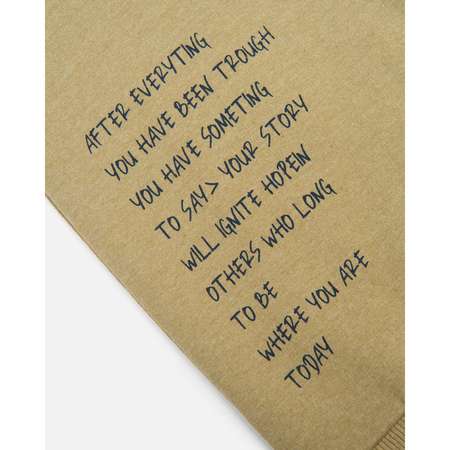 AFTER EVERYTING
YOU HAVE BEEN TROUGH
YOU HAVE SOMETING
TO SAY> YOUR STORY
WILL IGNITE HOPEIN
OTHERS WHO LONG
TO BE
WHERE YOU ARE
TODAY